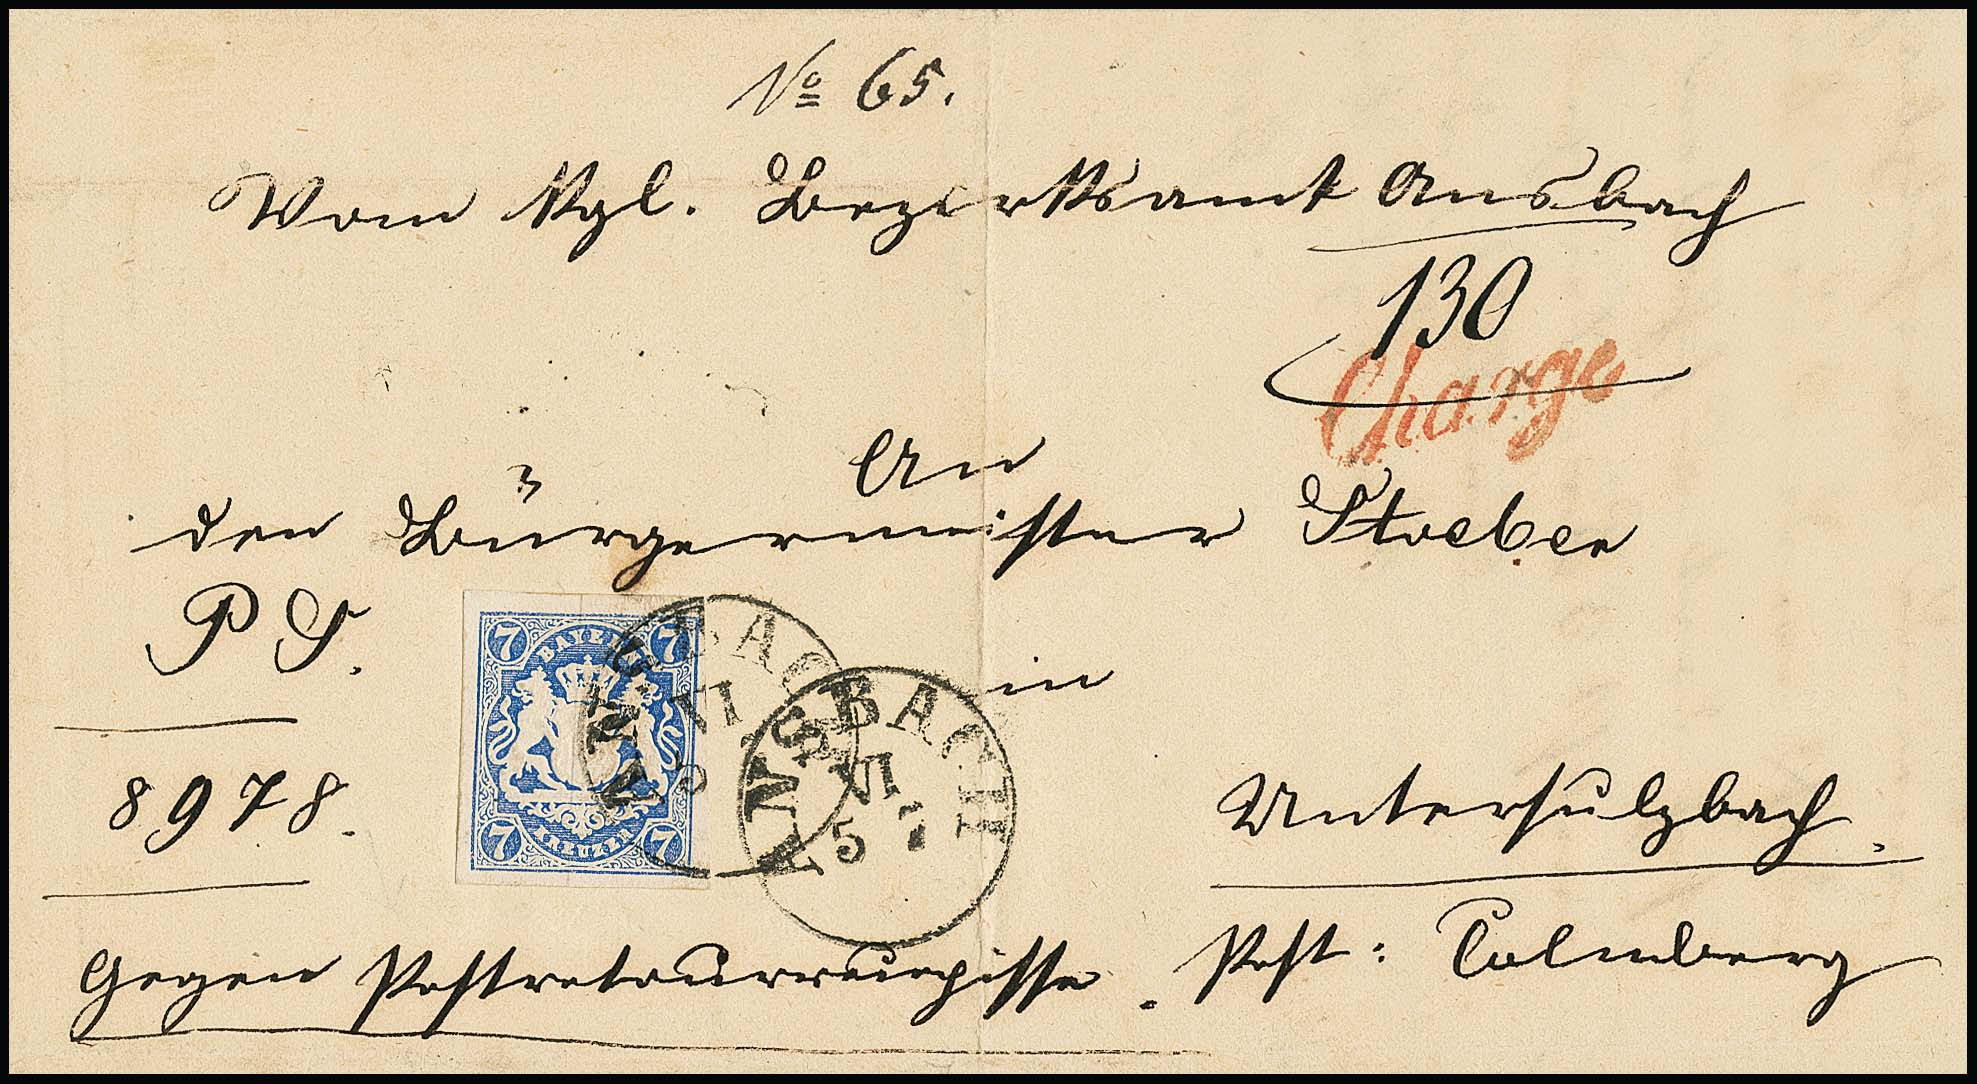 No 65.
Vom Kgl. Bezirksamt Ansbach
130
Charge
An
den Bürgermeister Stoeber
P S.
in
7 7
BAYERN
KREUZER
7 7
ANSBACH
VI
5
ANSBACH
VI
5 7
8978.
Untersulzbach.
Gegen Postretourrecepisse. Post: Colmberg